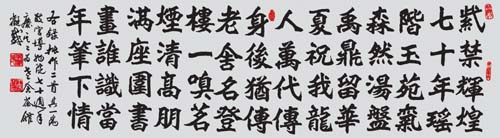 紫禁輝煌
七十年瑶
階玉殿氣
森然湯盤
禹鼎留華
夏祝我龍
人萬代傳
身後猶傳
老舍名登
樓一嗅茗
煙清高朋
滿座圍書
畫誰識當
年筆下情
二首
故宮博物院七十週年